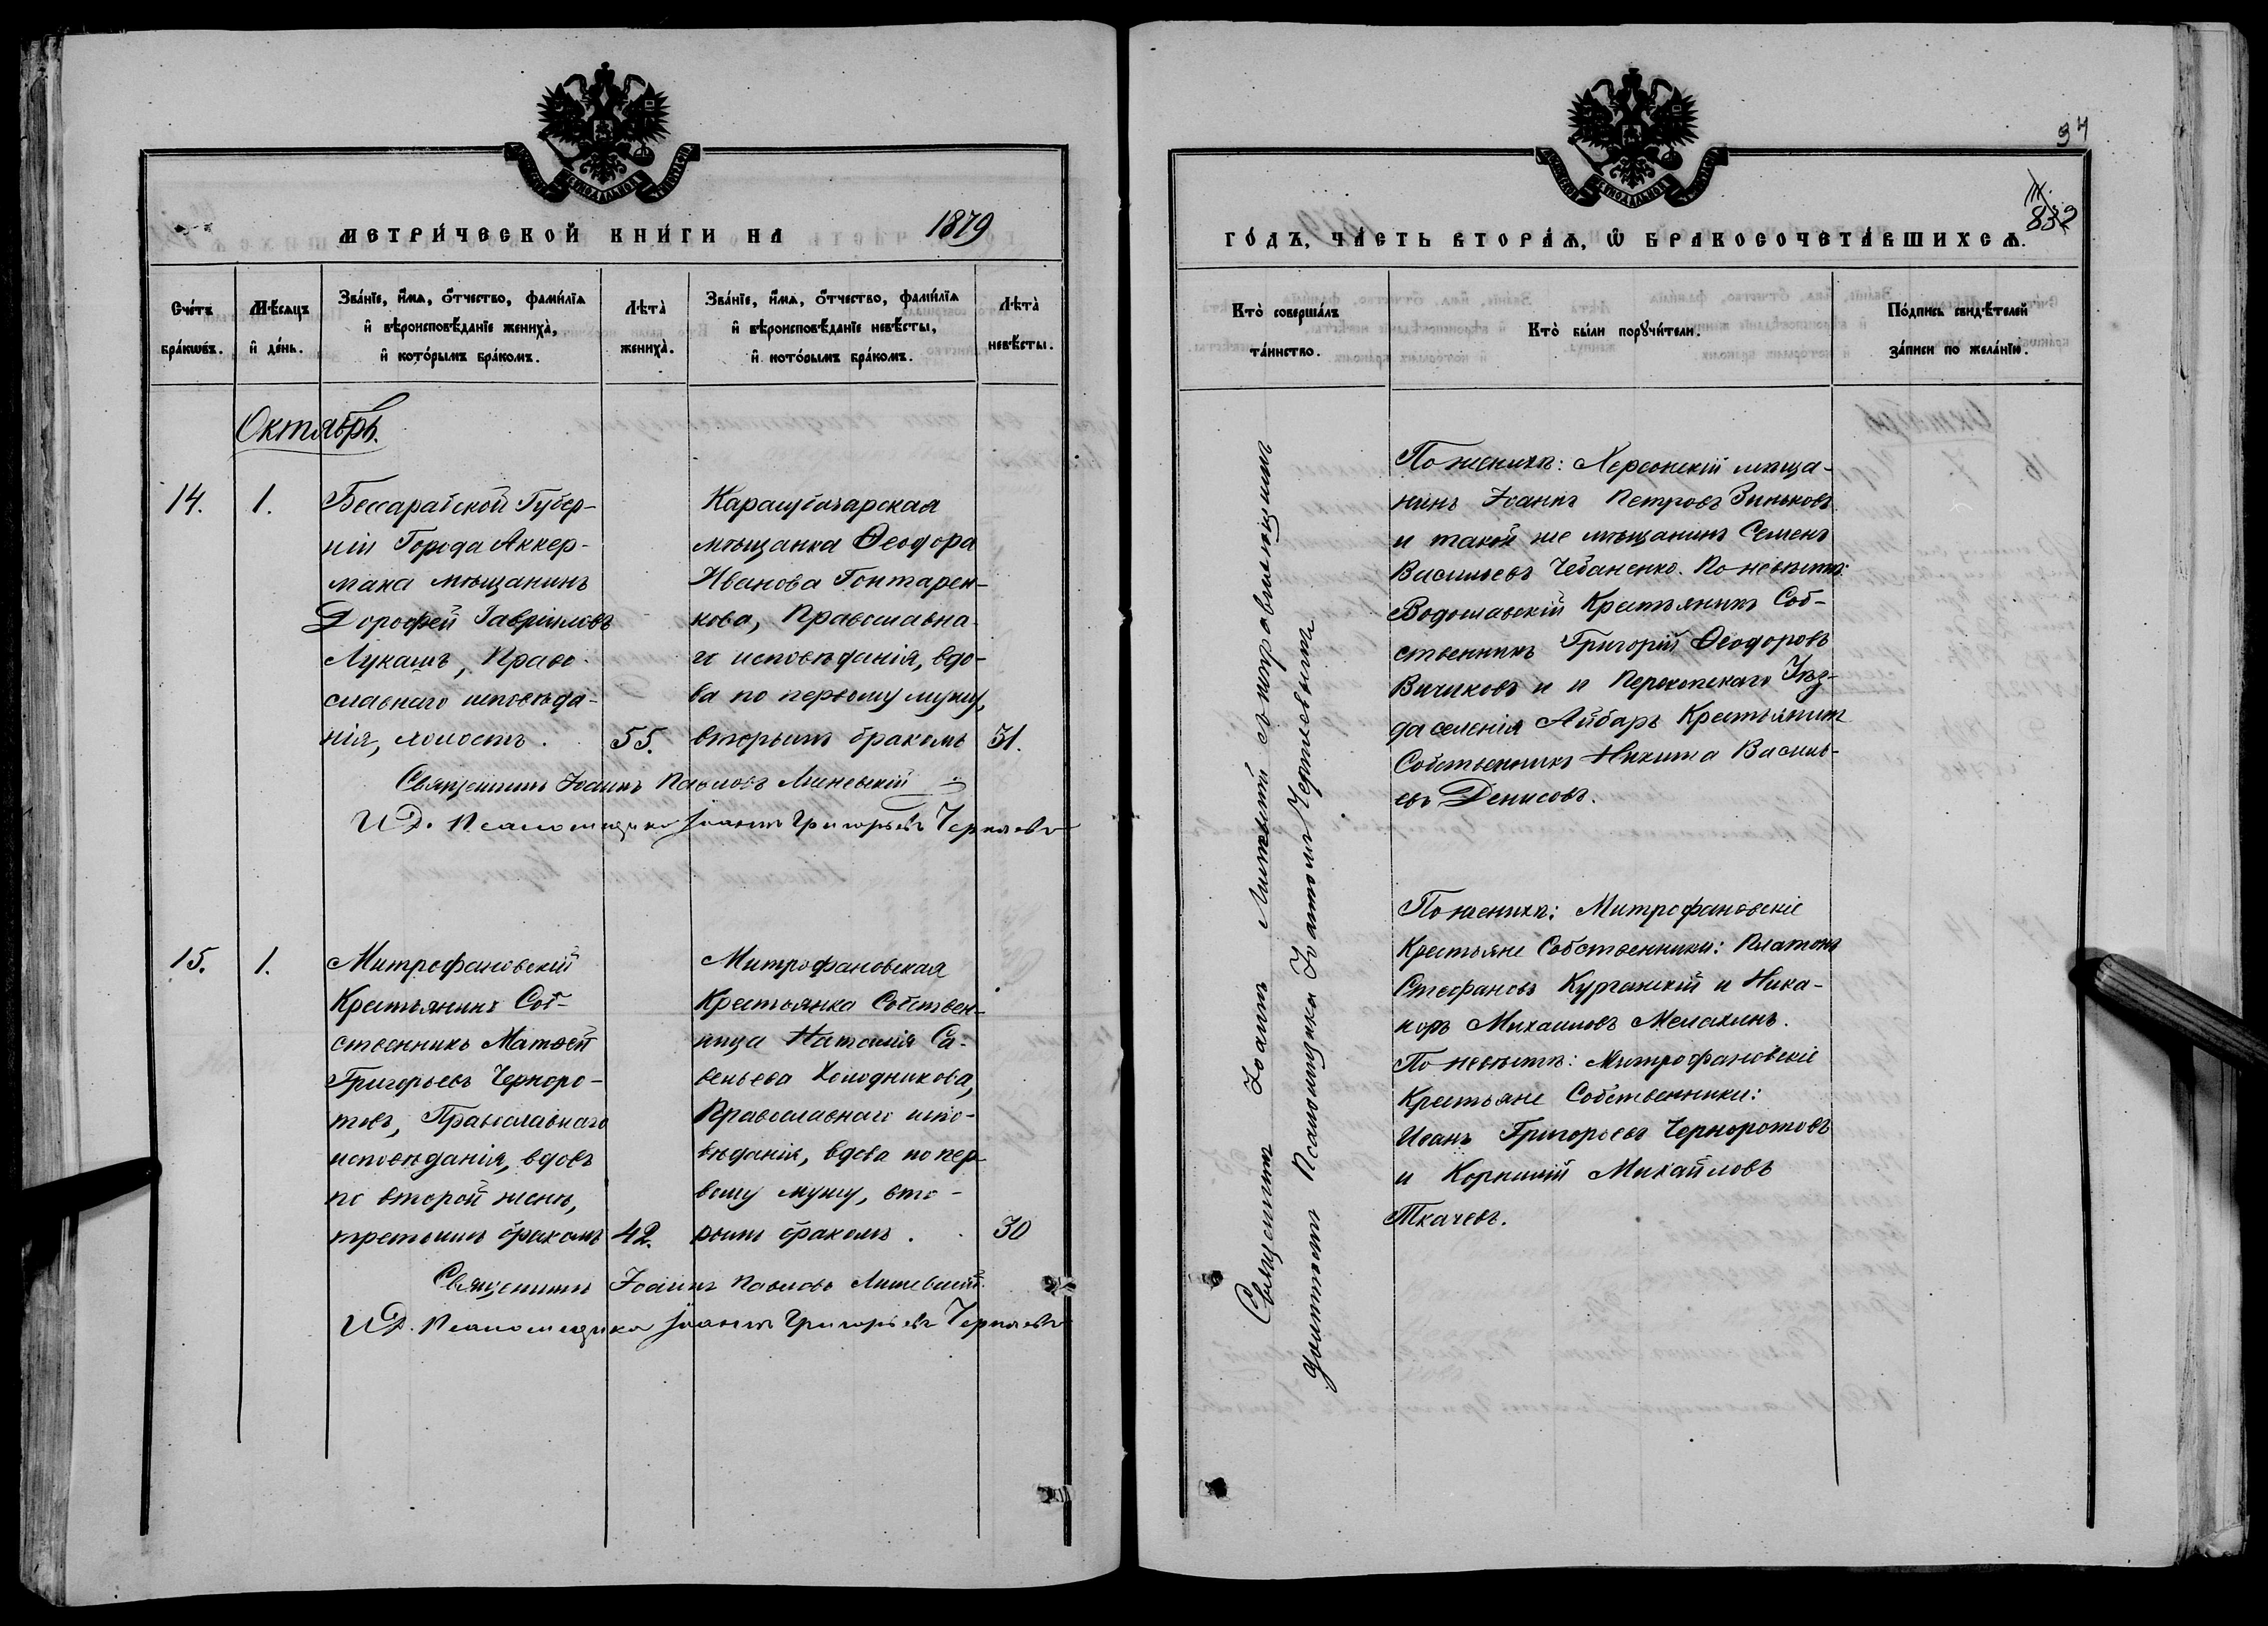 МЕТРИ́ЧЕСКОЙ КНИ́ГИ НА 1879
Сче́тъ бра́кѡвъ.
Мѣ́сяцъ и҆ де́нь.
Зва́нїе, и҆́мѧ, ѻ҆́тчество, фами́лїѧ
и҆ вѣроисповѣ́данїе жениха̀,
и҆ кото́рымъ бра́комъ.
Лѣта̀
жениха̀.
Зва́нїе, и҆́мѧ, ѻ҆́тчество, фами́лїѧ
и҆ вѣроисповѣ́данїе невѣ́сты,
и҆ кото́рымъ бра́комъ.
Лѣта̀
невѣ́сты.
Октябрь.
14.
1.
Бессарабской Губер-
ніи Города Аккер-
мана мѣщанинъ
Дорофей Гавріиловъ
Лукашъ, Право-
славнаго исповѣда-
нія, холостъ.
55.
Карасубазарская
мѣщанка Ѳеодора
Иванова Гонтарен-
кова, Православна-
го исповѣданія, вдо-
ва по первому мужу,
вторымъ бракомъ
51.
Священникъ Іоаннъ Павловъ
И Д. Псаломщика Іоаннъ Григорьевъ
15.
1.
Митрофановскій
Крестьянинъ Соб-
ственникъ Матѳей
Григорьевъ Черноро-
товъ, Православнаго
исповѣданія, вдовъ
по второй женѣ,
третьимъ бракомъ
42.
Митрофановская
Крестьянка Собствен-
ница Наталія Са-
вельева Холодникова,
Православнаго испо-
вѣданія, вдова по пер-
вому мужу, вто-
рымъ бракомъ.
30
Священникъ Іоаннъ Павловъ
И Д. Псаломщика Іоаннъ Григорьевъ
34
832
ГО́ДЪ, ЧА́СТЬ ВТОРА́Ѧ, Ѽ БРАКОСОЧЕТА́ВШИХСѦ.
Кто̀ соверша́лъ
та́инство.
Кто̀ бы́ли порꙋчи́тели.
По́дпись свидѣ́телей
за́писи по жела́нїю.
Священникъ Іоаннъ съ исправляющимъ
должность Псаломщика Іоанномъ
По женихѣ: Херсонскій мѣща-
нинъ Іоаннъ Петровъ Зиньковъ
и такой же мѣщанинъ Семенъ
Васильевъ Чебаненко. По невѣстѣ:
Водославскій Крестьянинъ Соб-
ственникъ Григорій Ѳеодоровъ
Бичиковъ и и Перекопскаго Уѣз-
да селенія Айбаръ Крестьянинъ
Собственникъ Никита Василь-
евъ Денисовъ.
По женихѣ: Митрофановскіе
Крестьяне Собственники: Платонъ
Стефановъ Курганскій и Ника-
норъ Михаиловъ Мелахинъ.
По невѣстѣ: Митрофановскіе
Крестьяне Собственники:
Иванъ Григорьевъ Черноротовъ
и Корнилій Михайловъ
Ткачевъ.